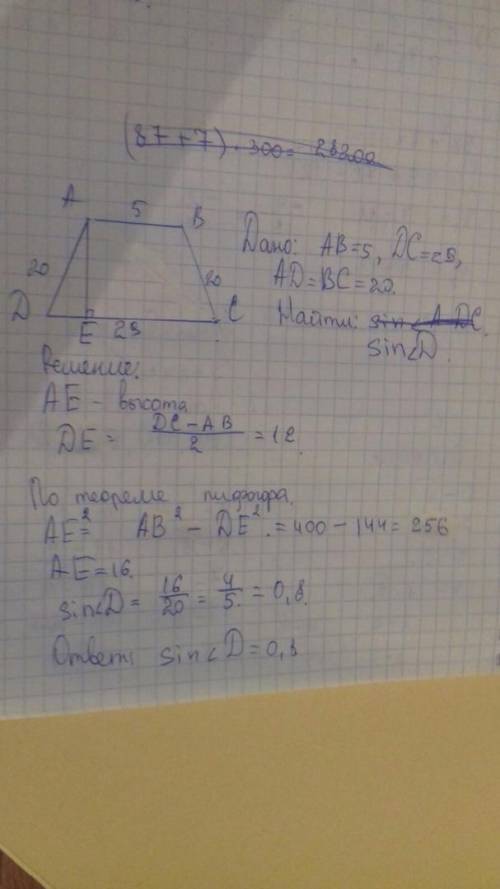 (87+7)·300=28200
A 5 B
20 20
D E 29 C
Дано: AB=5, DC=29,
AD=BC=20.
Найти: sin∠ADC
sin∠D.
Решение:
AE - высота
DE = \frac{DC-AB}{2} =12.
По теореме пифагора.
AE²= AB² - DE².=400-144=256
AE=16.
sin∠D= \frac{16}{20} = \frac{4}{5} = 0,8.
Ответ: sin∠D=0,8